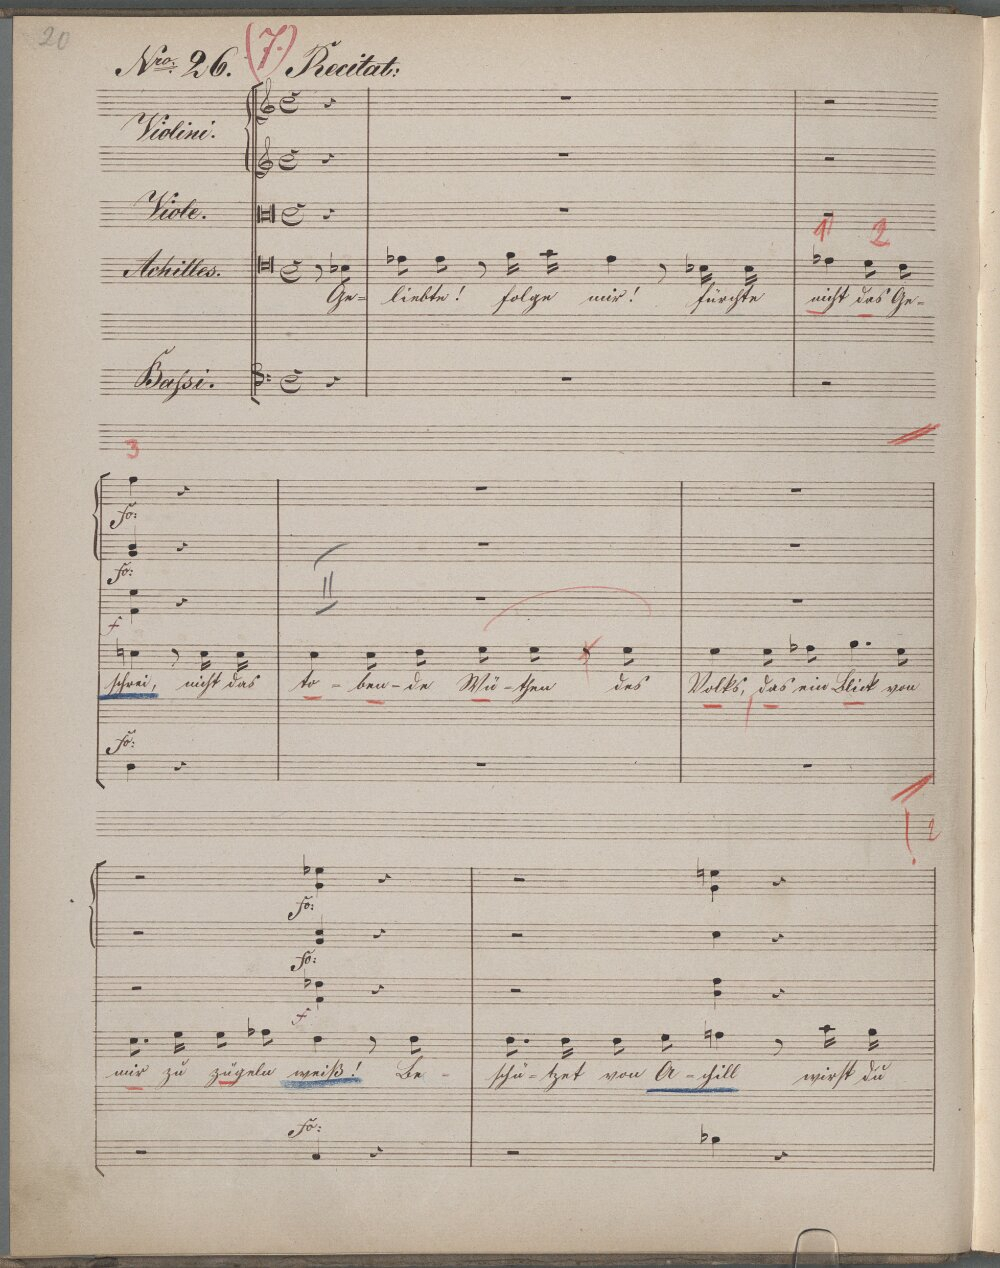 20
Nro. 26. (7.) Recitat:
Violini.
Viole.
1 2
Achilles.
Ge- liebte! folge mir! fürchte nicht das Ge-
Bassi.
3
fo:
fo:
f
schrei, nicht das to-ben-de Wü-then des Volks, das ein Blick von
fo:
2
fo:
fo:
f
mir zu zügeln weiß! Be- schü-tzet von A-chill wirst du
fo: